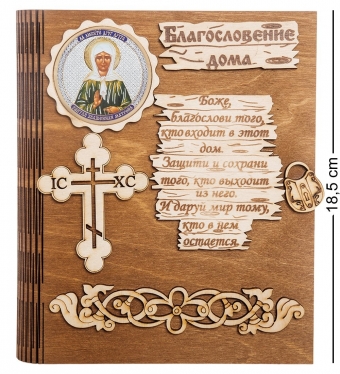 Благословение
дома
Боже,
благослови того,
кто входит в этот
дом.
Защити и сохрани
того, кто выходит
из него.
И даруй мир тому,
кто в нем
остается.
IC XC
18,5 cm